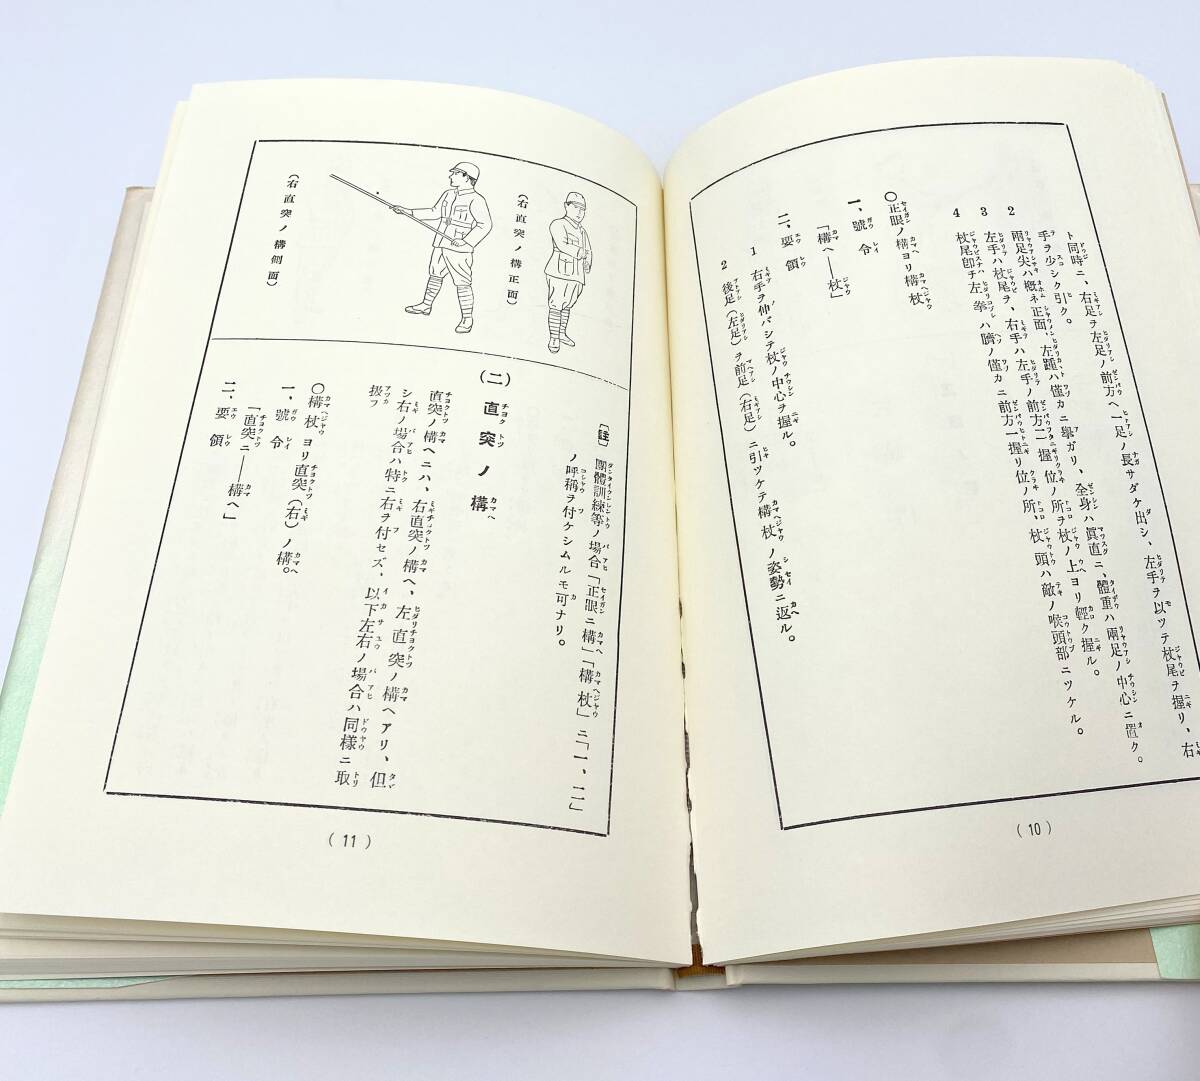 ト同時ニ、右足ヲ左足ノ前方ヘ一足ノ長サダケ出シ、左手ヲ以ツテ杖尾ヲ握リ、右
手ヲ少シク引ク。
2 兩足尖ハ概ネ正面、左踵ハ僅カニ擧ガリ、全身ハ眞直ニ、體重ハ兩足ノ中心ニ置ク。
3 左手ハ杖尾ヲ、右手ハ左手ノ前方二握リ位ノ所ヲ杖ノ上ヨリ輕ク握ル。
4 杖尾卽チ左拳ハ臍ノ僅カニ前方一握リ位ノ所、杖頭ハ敵ノ喉頭部ニツケル。
〇正眼ノ構ヨリ構杖
一、號令
「構ヘ――杖」
二、要領
1 右手ヲ伸バシテ杖ノ中心ヲ握ル。
2 後足(左足)ヲ前足(右足)ニ引ツケテ構杖ノ姿勢ニ返ル。
(10)
(右直突ノ構正面)
(右直突ノ構側面)
〔註〕 團體訓練等ノ場合「正眼ニ構」「構杖」ニ「一、二」
ノ呼稱ヲ付ケシムルモ可ナリ。
(二) 直突ノ構
直突ノ構ヘニハ、右直突ノ構ヘ、左直突ノ構ヘアリ、但
シ右ノ場合ハ特ニ右ヲ付セズ、以下左右ノ場合ハ同樣ニ取
扱フ
〇構杖ヨリ直突(右)ノ構。
一、號令
「直突ニ――構ヘ」
二、要領
(11)